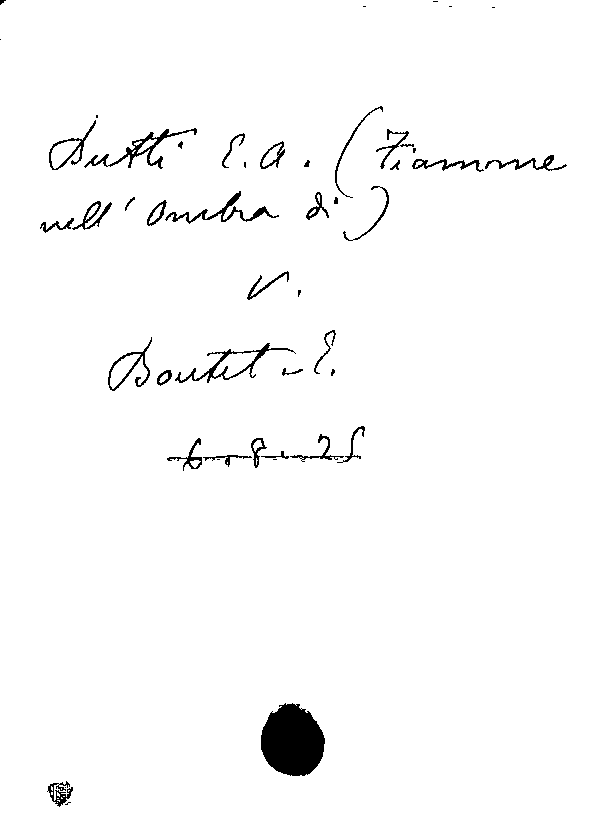 Butti E.A. (Fiamme
nell'Ombra di)
V.
Boutet - E.
6.8.25